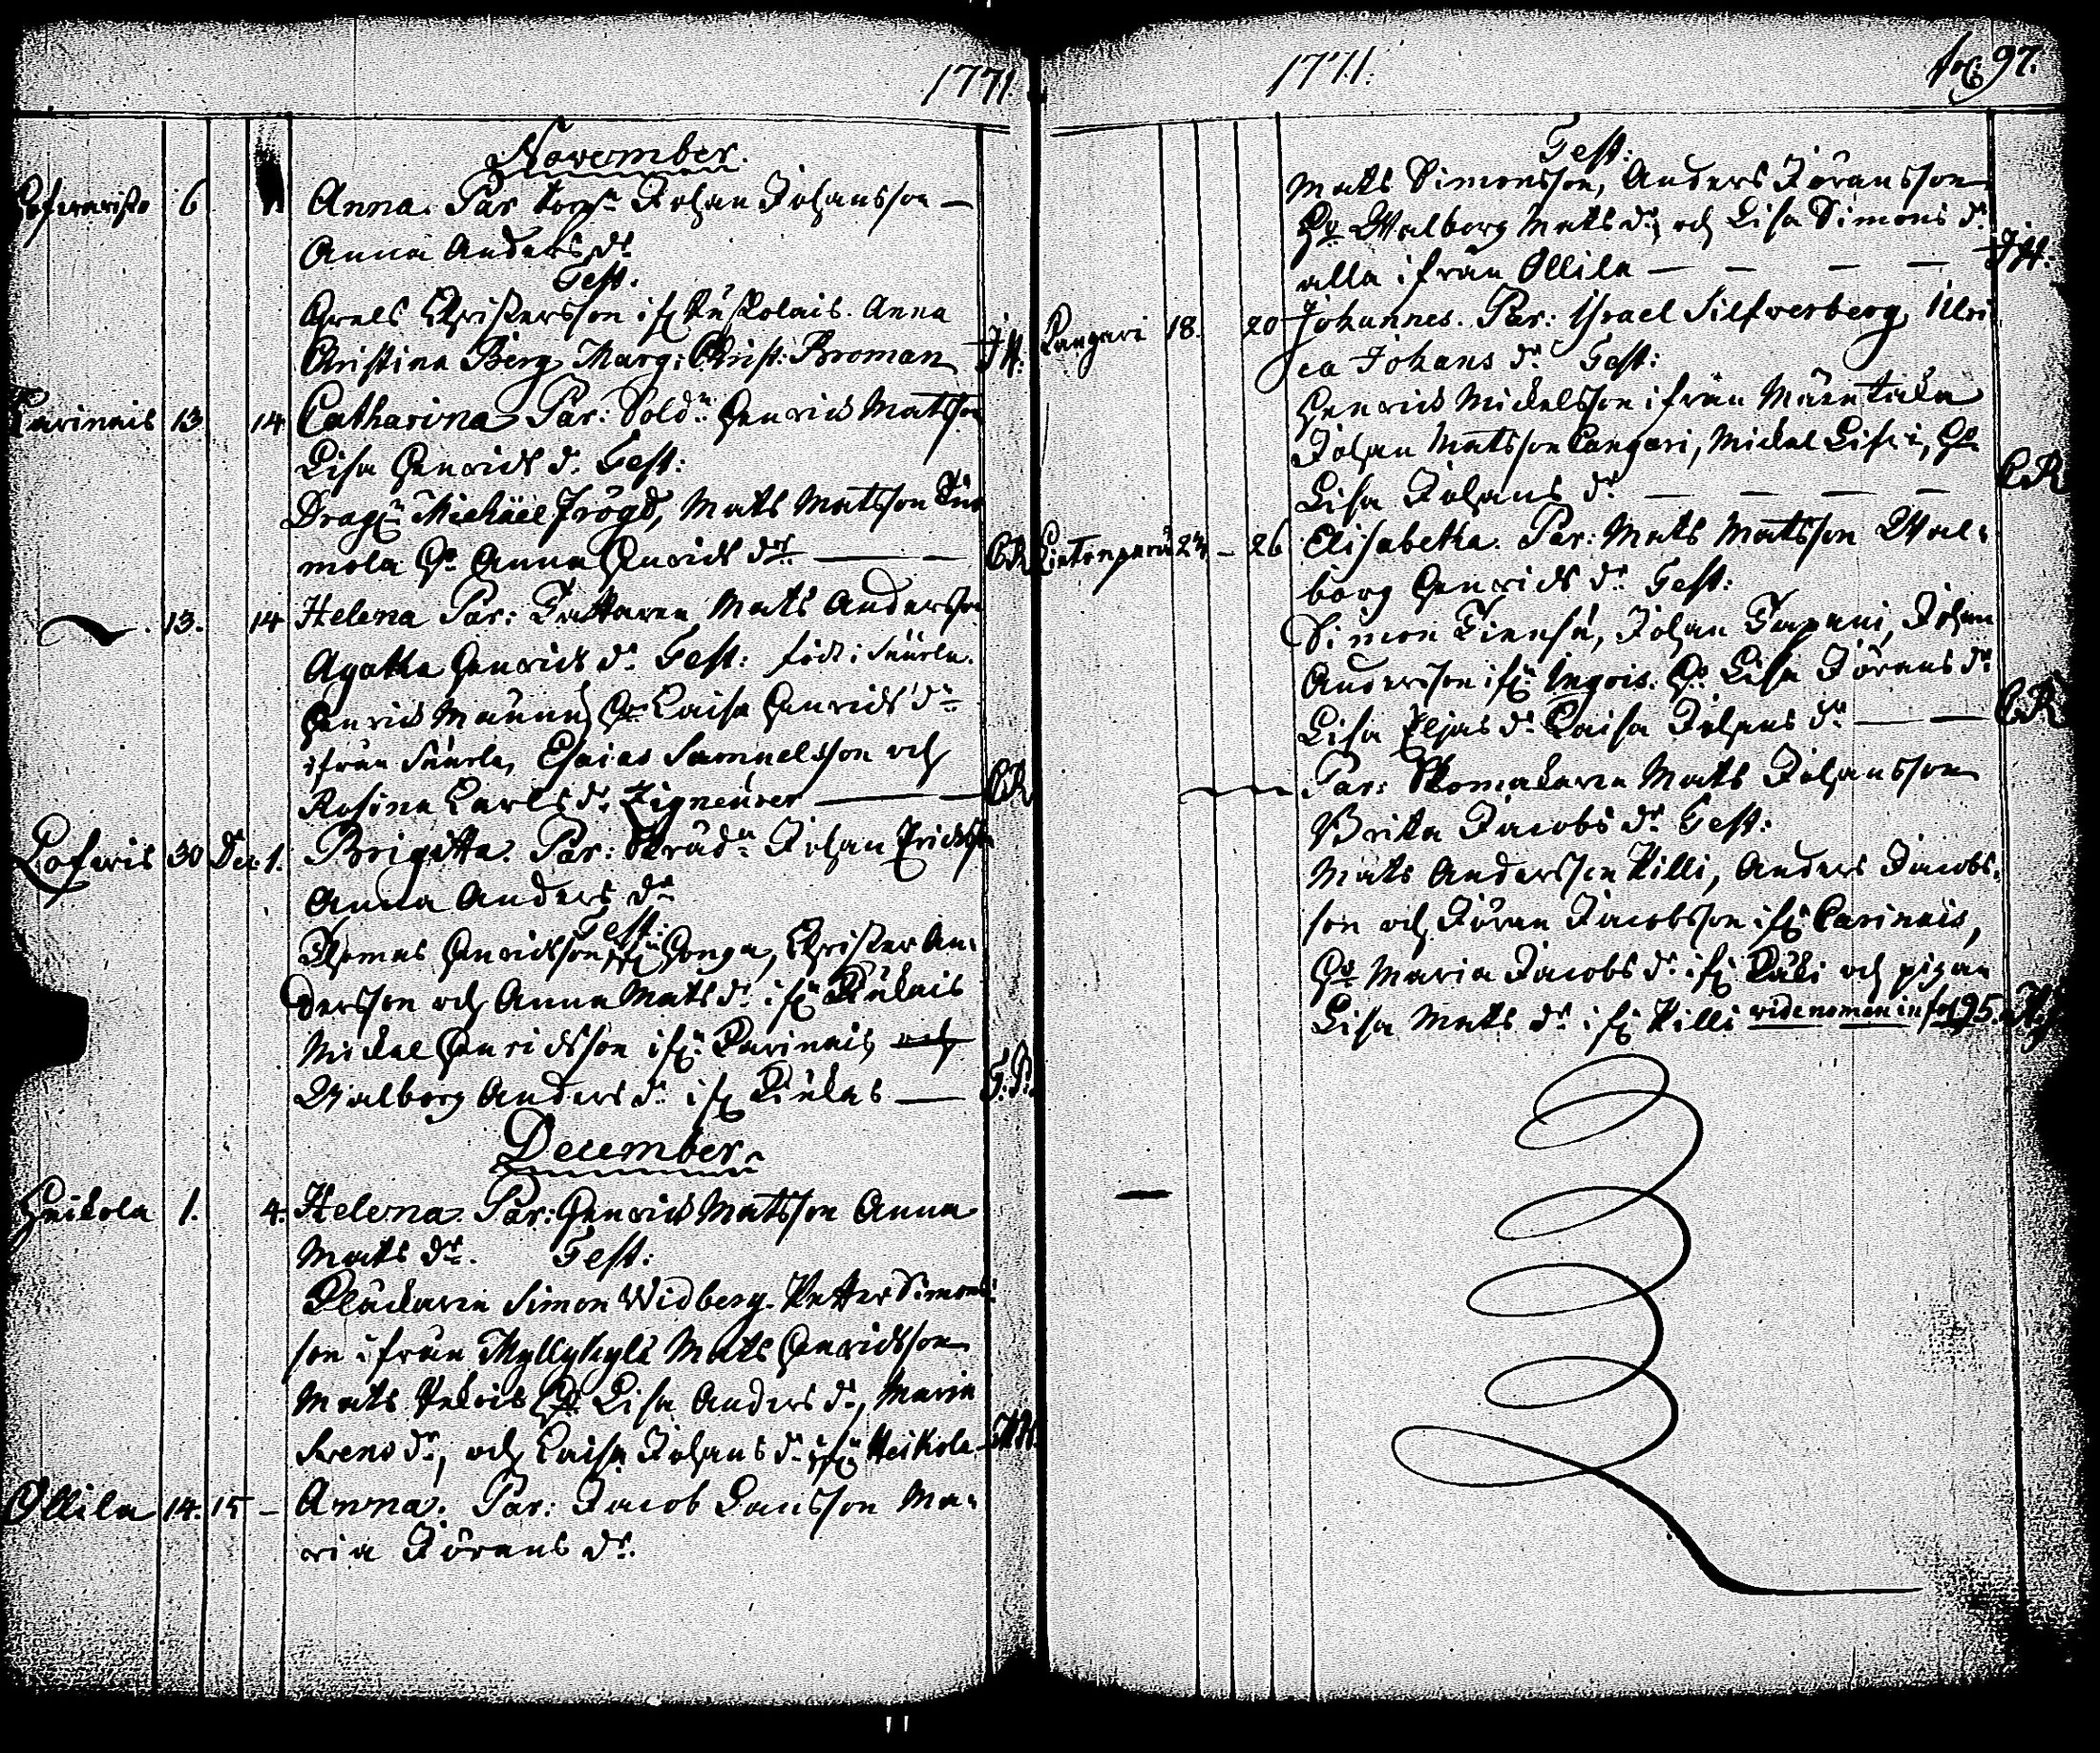 1771.
November.
6 1. Anna. Par torp: Johan Johansson —
Anna Anders dr
Test:
Christersson ifr Anna
Christina Berg Marg: Christ: Broman J.H.
Karinais 13 14 Catharina Par: Sold:n Henrich Matsson
Lisa Henrichs dr. Test:
Drag:n Michael Frögd, Mats Matsson
mola H: Anna Henrichs dr — — CR
13. 14 Helena Par: Mats Andersson
Agatha Henrichs dr. Test: född i
Henrich H: Caisa Henrichs dr
ifrån Esaias Samuelsson och
Rosina Carls dr. — — CR
30 Dec: 1. Brigitta. Par: Skräd:n Johan Ericksson
Anna Anders dr
Test:
Thomas Henrichsson ifr Christer An-
dersson och Anna Mats dr. ifr
Mickel Henrichsson ifr: Karinais och
Walborg Anders dr. ifr — T.P.
December.
Heikola 1. 4. Helena. Par: Henrich Matsson Anna
Mats dr. Test:
Simon Widberg. Petter Simons-
son ifrån Myllykylä Mats Henrichsson
Mats H: Lisa Anders dr, Maria
dr, och Caisa Johans dr ifr Heikola
Ollila 14. 15 – Anna. Par: Jacob Ma-
ria Jörans dr.
1771. fol: 97.
Test:
Mats Simonsson, Anders Jöransson
Hu Walborg Mats dr, och Lisa Simons dr
alla ifrån Ollila — — — — J.H.
Kangari 18. 20 Johannes. Par: Israel Silfwerberg, Ulri-
ca Johans dr. Test:
Henrich Mickelsson ifrån
Johan Matsson Cangari, Mickel H:
Lisa Johans dr. — — — — CR
24 – 26 Elisabetha. Par: Mats Matsson Wal-
borg Henrichs dr. Test:
Simon Johan Tapani, Johan
Andersson ifr: Ingois. H: Lisa Jörans dr
Lisa Eljas dr. Caisa Johans dr — — CR
Par: Skomakaren Mats Johansson
Brita Jacobs dr. Test:
Mats Andersson Killi, Anders Jacobs-
son och Jöran Jacobsson ifr Carinais,
Hu Maria Jacobs dr. ifr och pigan
Lisa Mats dr. ifr Killi vide nomen in fol 195.